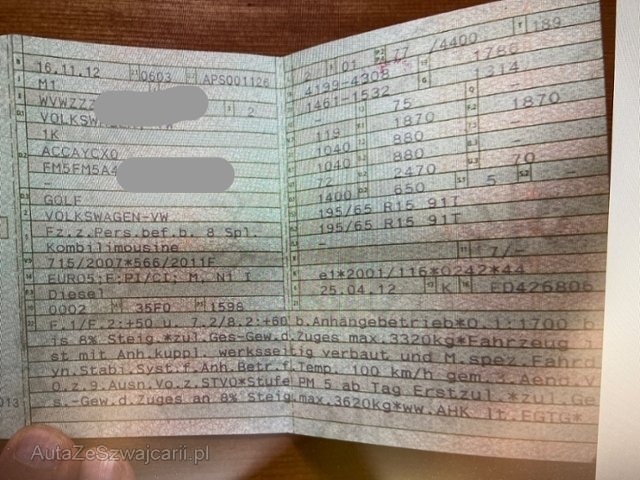 16.11.12 0603 APS001126
M1
WVWZZZ 2
VOLKSWAGEN-VW
1K
ACCAYCX0
FM5FM5A4
-
GOLF
VOLKSWAGEN-VW
Fz.z.Pers.bef.b. 8 Spl.
Kombilimousine
715/2007*566/2011F
EURO5;E;PI/CI; M, N1 I
Diesel
0002 35F0 1598
2 01 77 /4400 189
4199-4308 1786
1461-1532 1314
- 75 -
119 1870 1870
1040 880
1040 880
72 2470 70
1400 650 5 -
195/65 R15 91T
195/65 R15 91T
-
- 7/-
e1*2001/116*0242*44
25.04.12 K ED426806
F.1/F.2:+50 u. 7.2/8.2:+60 b.Anhängebetrieb*O.1:1700 b
is 8% Steig.*zul.Ges-Gew.d.Zuges max.3320kg*Fahrzeug i
st mit Anh.kuppl. werksseitig verbaut und M.spez.Fahrd
yn.Stabi.Syst.f.Anh.Betr.f.Temp. 100 km/h gem.3.Aend.V
O.z.9.Ausn.Vo.z.STVO*Stufe PM 5 ab Tag Erstzul.*zul.Ge
s.-Gew.d.Zuges an 8% Steig.max.3620kg*ww.AHK lt.EGTG*
013
AutaZeSzwajcarii.pl